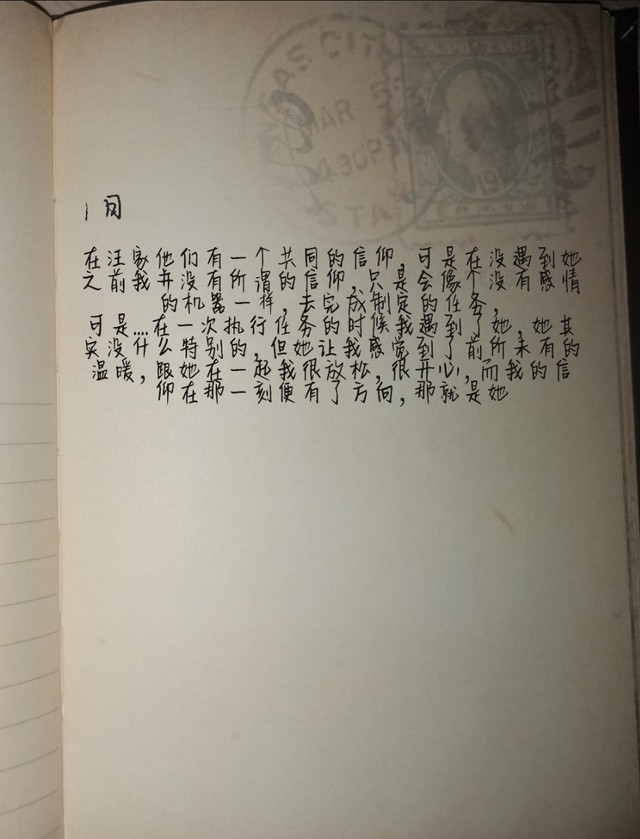 AS CIT
MAR 5
430P
STA
在汪家他们有一个共同的信仰,可是在没遇到她
之前我并没有所谓的信仰,只是会像个没有感情
的机器一样,去完成制定的任务,
可是....在一次执行任务的时候我遇到了她,她其
实没什么特别的,但她让我感觉到了前所未有的
温暖,跟她在一起我很放松,很开心,而我的信
仰在那一刻便有了方向,那就是她